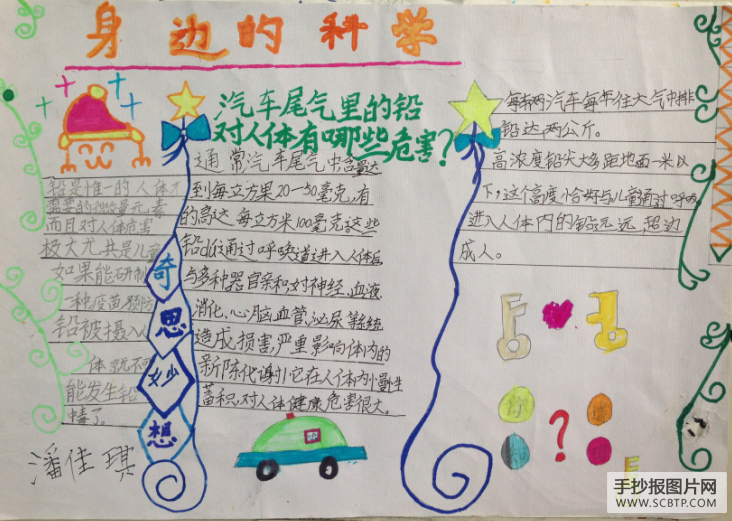 身边的科学
汽车尾气里的铅
对人体有哪些危害?
铅是惟一的人体不
需要的微量元素
而且对人体危害
极大尤其是儿童
如果能研制
一种疫苗预防
铅被摄入人
体就不可
能发生铅
中毒了。
潘佳琪
奇
思
妙
想
通常汽车尾气中含量达
到每立方果20-50毫克,有
的高达每立方米100毫克这些
铅通过呼吸道进入人体后
与多种器官亲和对神经、血液
消化、心脑、血管、泌尿等系统
造成损害严重影响体内的
新陈代谢它在人体内慢性
蓄积,对人体健康危害很大。
每辆汽车每年往大气中排
铅达两公斤。
高浓度铅尖大多距地面一米以
下,这个高度恰好与儿童通过呼吸
进入人体内的铅远远超过
成人。
你
知
?
手抄报图片网
WWW.SCBTP.COM